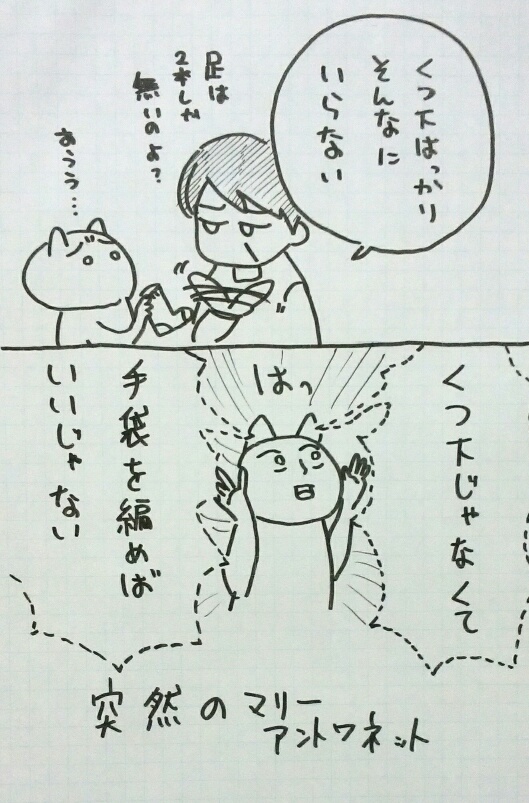 くつ下ばっかり
そんなに
いらない
足は
2本しか
無いのよ?
あううう…
はっ
くつ下じゃなくて
手袋を編めば
いいじゃない
突然のマリー
アントワネット